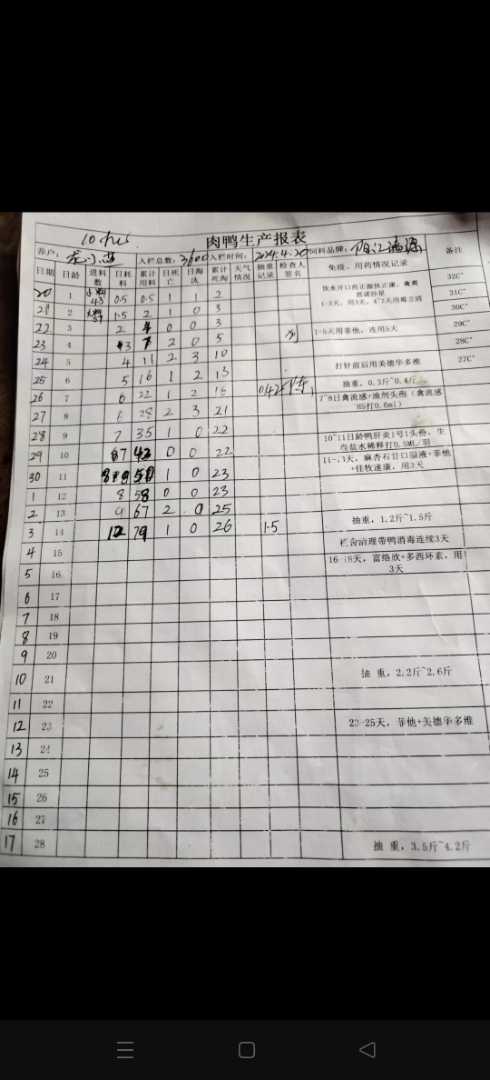 肉鸭生产报表
养户: 入栏总数: 3600 入栏时间: 2024.4.20 饲料品牌: 阳江
日期 日龄 进料数 日耗料 累计用料 日死亡 日淘汰 累计死淘 天气情况 抽重记录 检查人签名 免疫、用药情况记录 备注
20 1 0.5 0.5 2 32C°
21 2 1.5 2 1 0 3 31C°
22 3 2 4 0 0 3 30C°
23 4 3 7 2 0 5 1-5天用菲他,连用5天 29C°
28C°
24 5 4 11 2 3 10 打针前后用美德华多维 27C°
25 6 5 16 1 2 13 抽重,0.3斤~0.4斤
26 7 6 22 1 2 7~8日禽流感+油剂头孢(禽流感H5打0.6ml)
27 8 28 2 3 21
28 9 7 35 1 0 22
29 10 7 42 0 0 22 10~11日龄鸭肝炎1号1头份,生
30 11 1 0 23
1 12 8 58 0 0 23
2 13 9 67 2 0 25 抽重,1.2斤~1.5斤
3 14 12 79 1 0 26 1.5 栏舍治理带鸭消毒连续3天
4 15
5 16 3天
6 17
7 18
8 19
9 20
10 21 抽重,2.2斤~2.6斤
11 22
12 23 23-25天,菲他+美德华多维
13 24
14 25
15 26
16 27
17 28 抽重,3.5斤~4.2斤